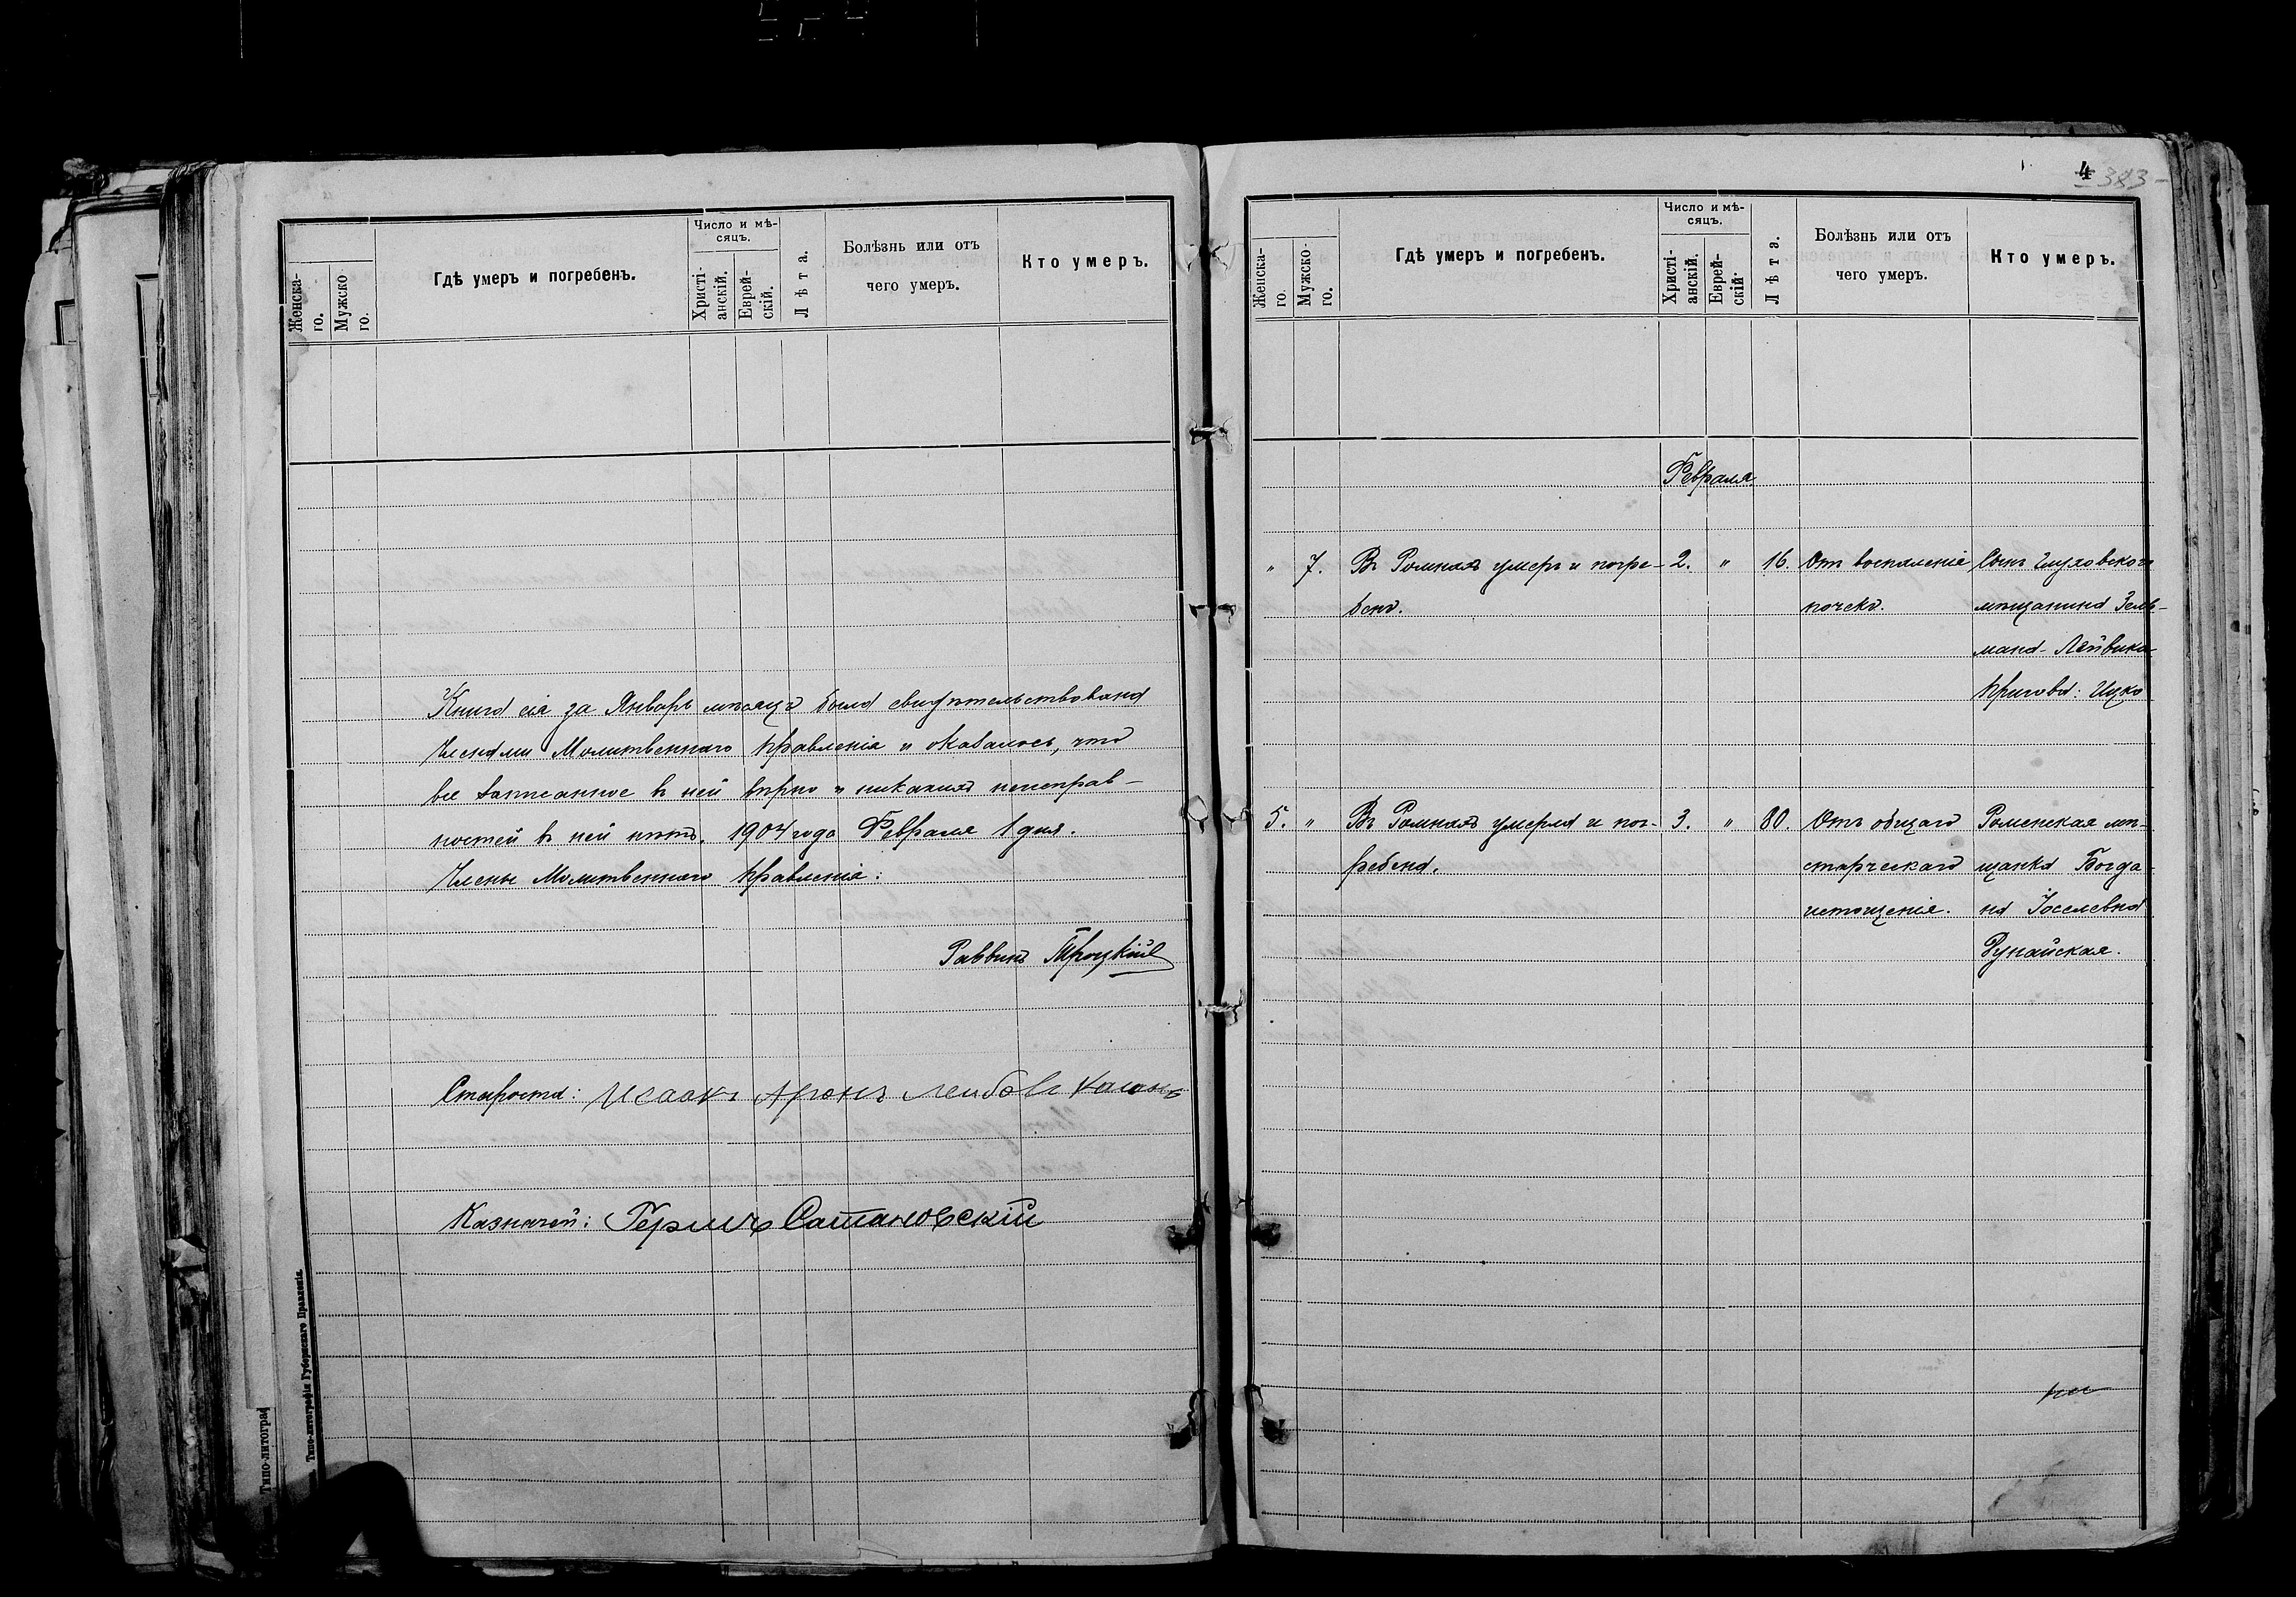 Женска-
го.
Мужско-
го.
Гдѣ умеръ и погребенъ.
Число и мѣ-
сяцъ.
Христі-
анскій.
Еврей-
скій.
Лѣта.
Болѣзнь или отъ
чего умеръ.
Кто умеръ.
Книга сія за Январь мѣсяцъ была свидѣтельствована
Членами Молитвеннаго Правленія и оказалось, что
все записанное въ ней вѣрно и никакихъ неисправ-
ностей въ ней нѣтъ. 1904 года Февраля 1 дня.
Члены Молитвеннаго Правленія:
Раввинъ Троцкій
Староста: Исаакъ Аронъ Лейбовъ Каганъ
Казначей: Гершъ Сатановскій
Типо-литографія Губернскаго Правленія.
Типо-литограф
4
383
Женска-
го.
Мужско-
го.
Гдѣ умеръ и погребенъ.
Число и мѣ-
сяцъ.
Христі-
анскій.
Еврей-
скій.
Лѣта.
Болѣзнь или отъ
чего умеръ.
Кто умеръ.
Февраля
" 7. Въ Ромнахъ умеръ и погре- 2. " 16. Отъ воспаленія Сынъ Глуховскаго
бенъ. почекъ. мѣщанина Заль-
мана-Лейвика
Пригова: Ицко
5. " Въ Ромнахъ умерла и пог- 3. " 80. Отъ общаго Роменская мѣ-
ребена. старческаго щанка Богда-
истощенія. на Іоселевна
Дунайская.